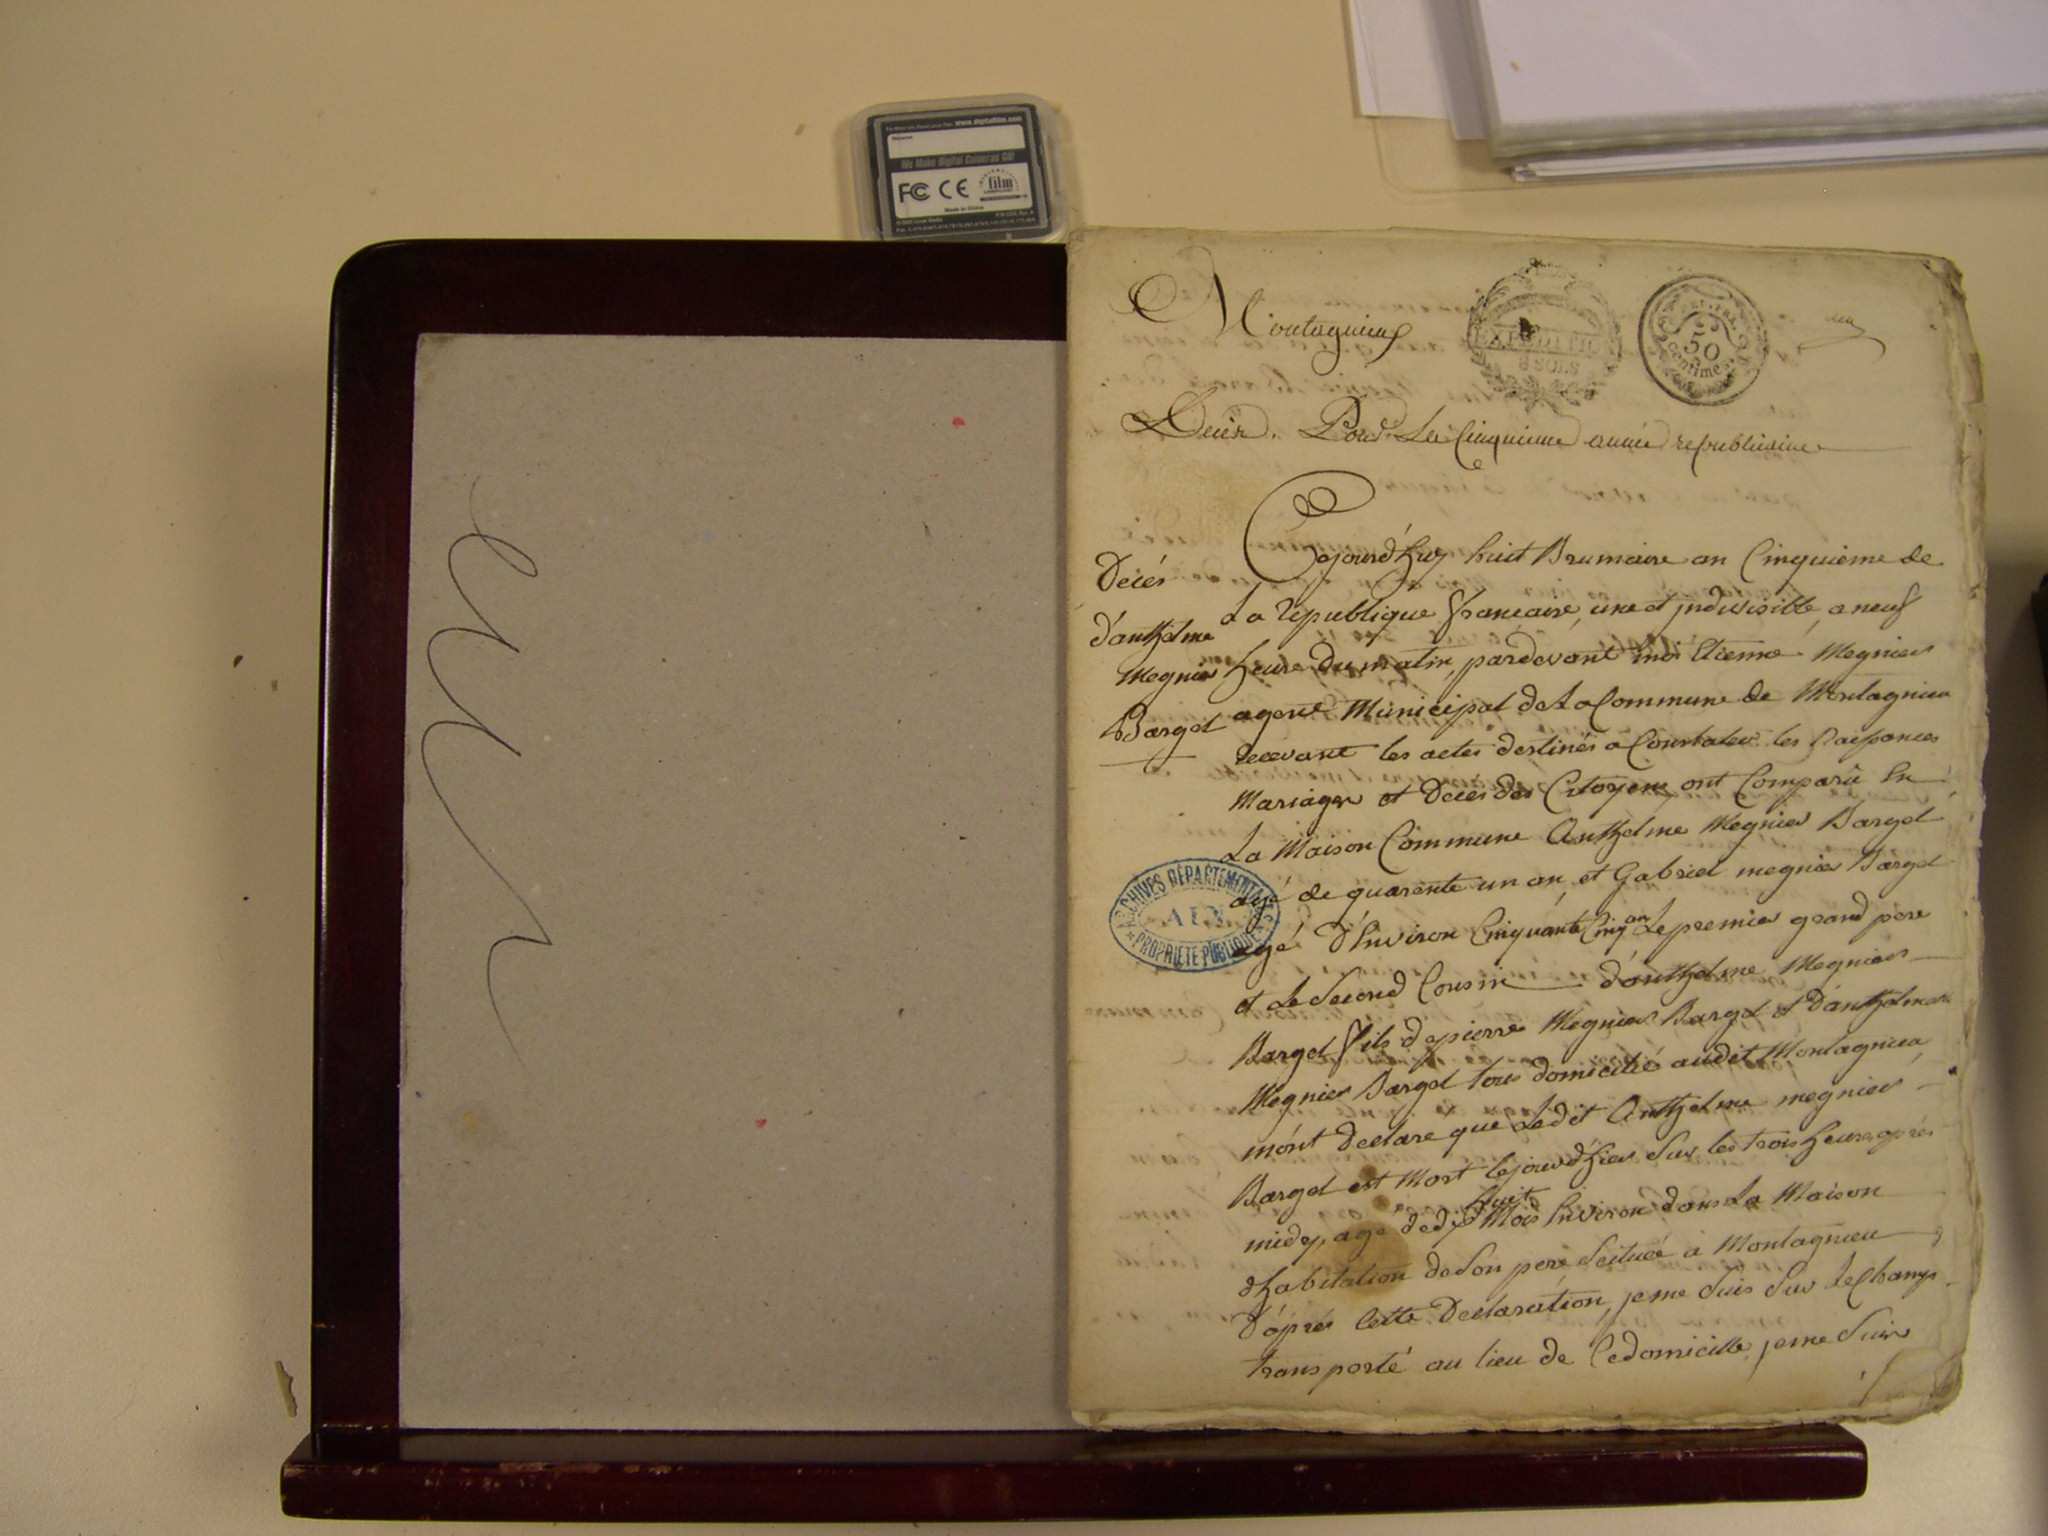 www.digitalfilm.com
We Make Digital Cameras Go!
FC CE film
Made in China
Montagnieu
EXPEDITIO
8 SOLS
50
centimes
Deces. Pour La Cinquieme année republicaine
Deces
d'anthelme
Megnier
Bargel
Cejourd'huy huit Brumaire an Cinquieme de
La Republique francaise, une et jndivisible, a neuf
heure du matin, pardevant moi Etienne Megnier
agent Municipal de La Commune de Montagnieu
recevant les actes destinés a Constater les Naissances
Mariages et Deces des Citoyens, ont Comparu En
La Maison Commune Anthelme Megnier Bargel
agé de quarente un an, et Gabriel megnier Bargel
agé d'Environ Cinquante Cinq an Le premier grand pere
et Le Second Cousin d'anthelme Megnier
Bargel fils de pierre Megnier Bargel et D'anthelma
Megnier Bargel tous domicilié audit Montagnieu
m'ont Declaré que Ledit Anthelme megnier
Bargel est Mort lejourd'hier Sur les trois heures après
midy, agé de dix huit Mois Environ dans La Maison
d'habitation de Son pere Scituée a Montagnieu
D'après Cette Declaration, je me Suis Sur le Champ
transporté au lieu de Ce domicille, je me Suis
ARCHIVES DÉPARTEMENTALES
AIN
PROPRIÉTÉ PUBLIQUE